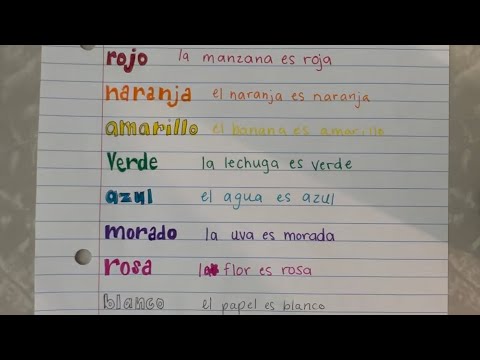 rojo la manzana es roja
naranja el naranja es naranja
amarillo el banana es amarillo
verde la lechuga es verde
azul el agua es azul
morado la uva es morada
rosa la flor es rosa
blanco el papel es blanco